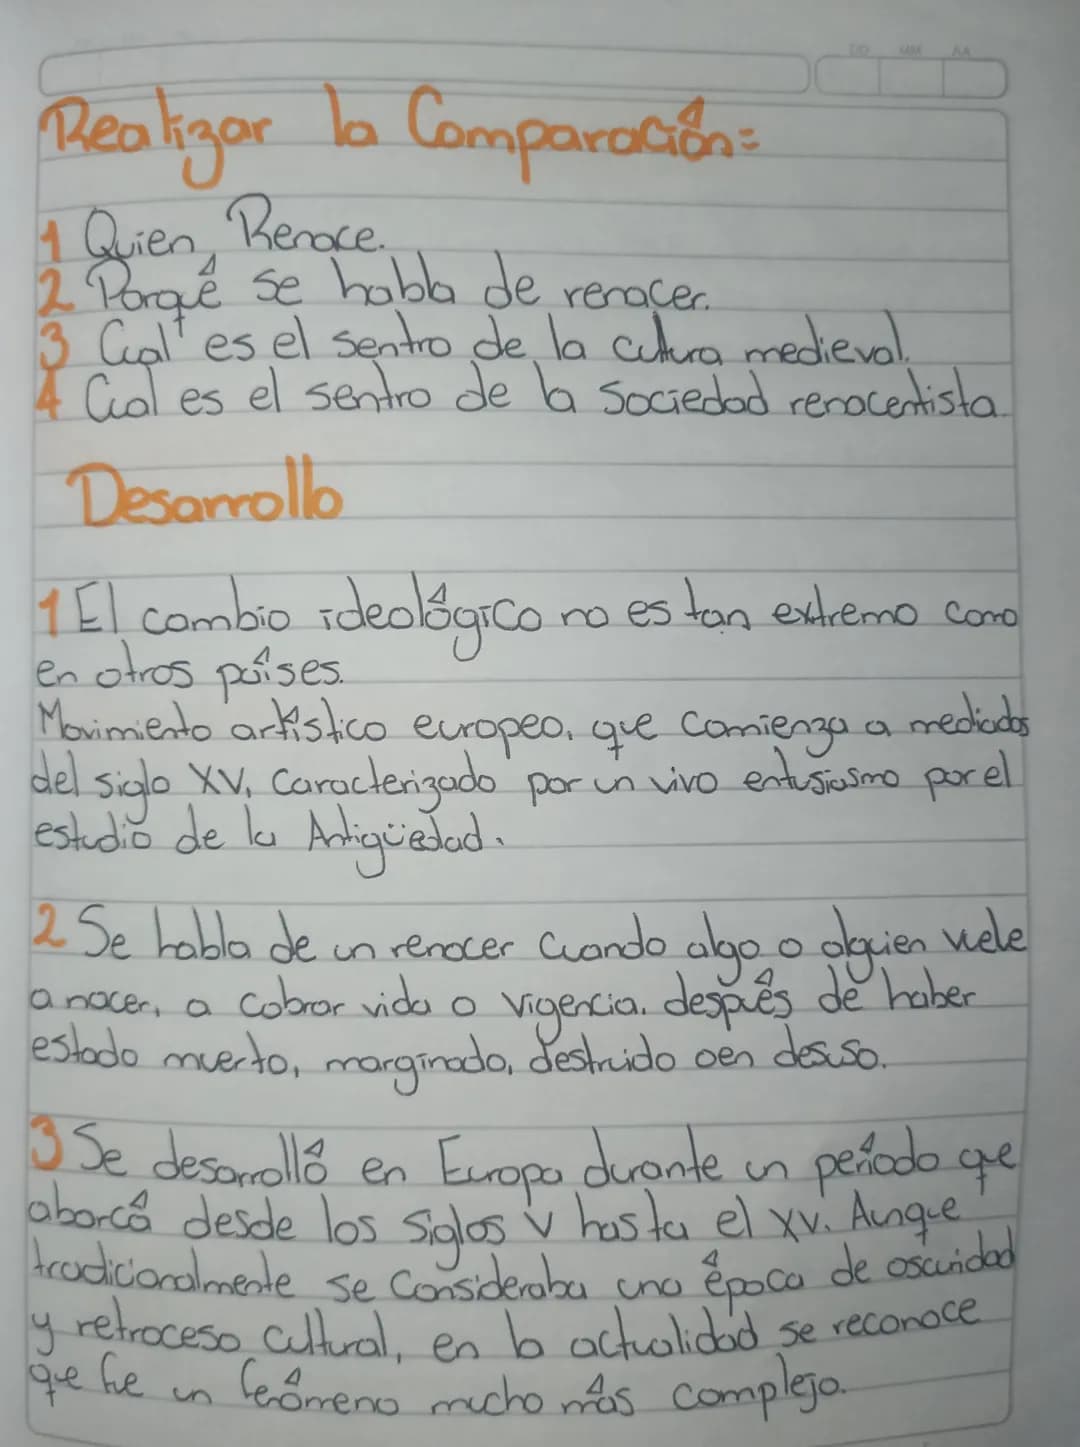 DD MM AA
Realizar la Comparación:
1 Quien Renace.
2 Porqué se habla de renacer.
3 Cual es el sentro de la cultura medieval.
4 Cual es el sentro de la Sociedad renacentista.
Desarrollo
1 El cambio ideológico no es tan extremo como
en otros países.
Movimiento artístico europeo, que comienza a mediados
del siglo XV, Caracterizado por un vivo entusiasmo por el
estudio de la Antigüedad.
2 Se habla de un renacer Cuando algo o alguien vuele
a nacer, a cobrar vida o vigencia, después de haber
estado muerto, marginado, destruido o en desuso.
3 Se desarrolló en Europa durante un período que
abarcá desde los siglos V hasta el XV. Aunque
tradicionalmente se Consideraba una época de oscuridad
y retroceso Cultural, en la actualidad se reconoce
que fue un feómreno mucho más complejo.